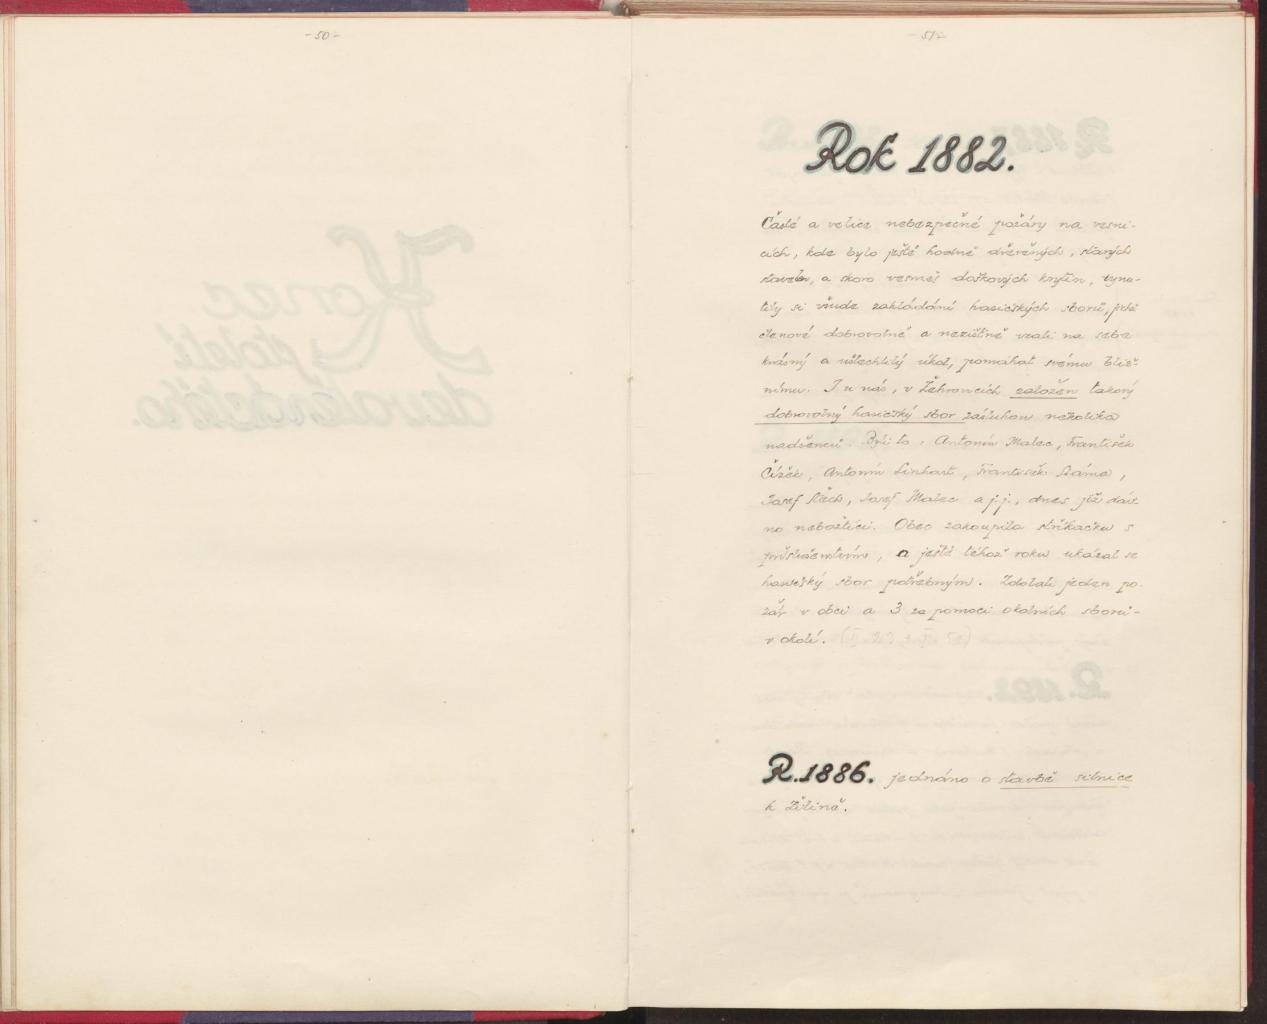 - 50 -
- 51 -
Rok 1882.
Časté a velice nebezpečné požáry na vesni-
cích, kde bylo ještě hodně dřevěných, starých
staveb, a skoro vesměs doškových krytin, vynu-
tily si všude zakládání hasičských sborů, jichž
členové dobrovolně a nezištně vzali na sebe
krásný a ušlechtilý úkol, pomáhat svému bliž-
nímu. I u nás, v Žehrovicích založen takový
dobrovolný hasičský sbor zásluhou několika
nadšenců. Byli to: Antonín Malec, František
Čížek, Antonín Linhart, František Sláma,
Josef Štěch, Josef Malec a j.j., dnes již dáv-
no nebožtíci. Obec zakoupila stříkačku s
příslušenstvím, a ještě téhož roku ukázal se
hasičský sbor potřebným. Zdolali jeden po-
žár v obci a 3 za pomoci okolních sborů-
v okolí.
R. 1886. jednáno o stavbě silnice
k Žilině.